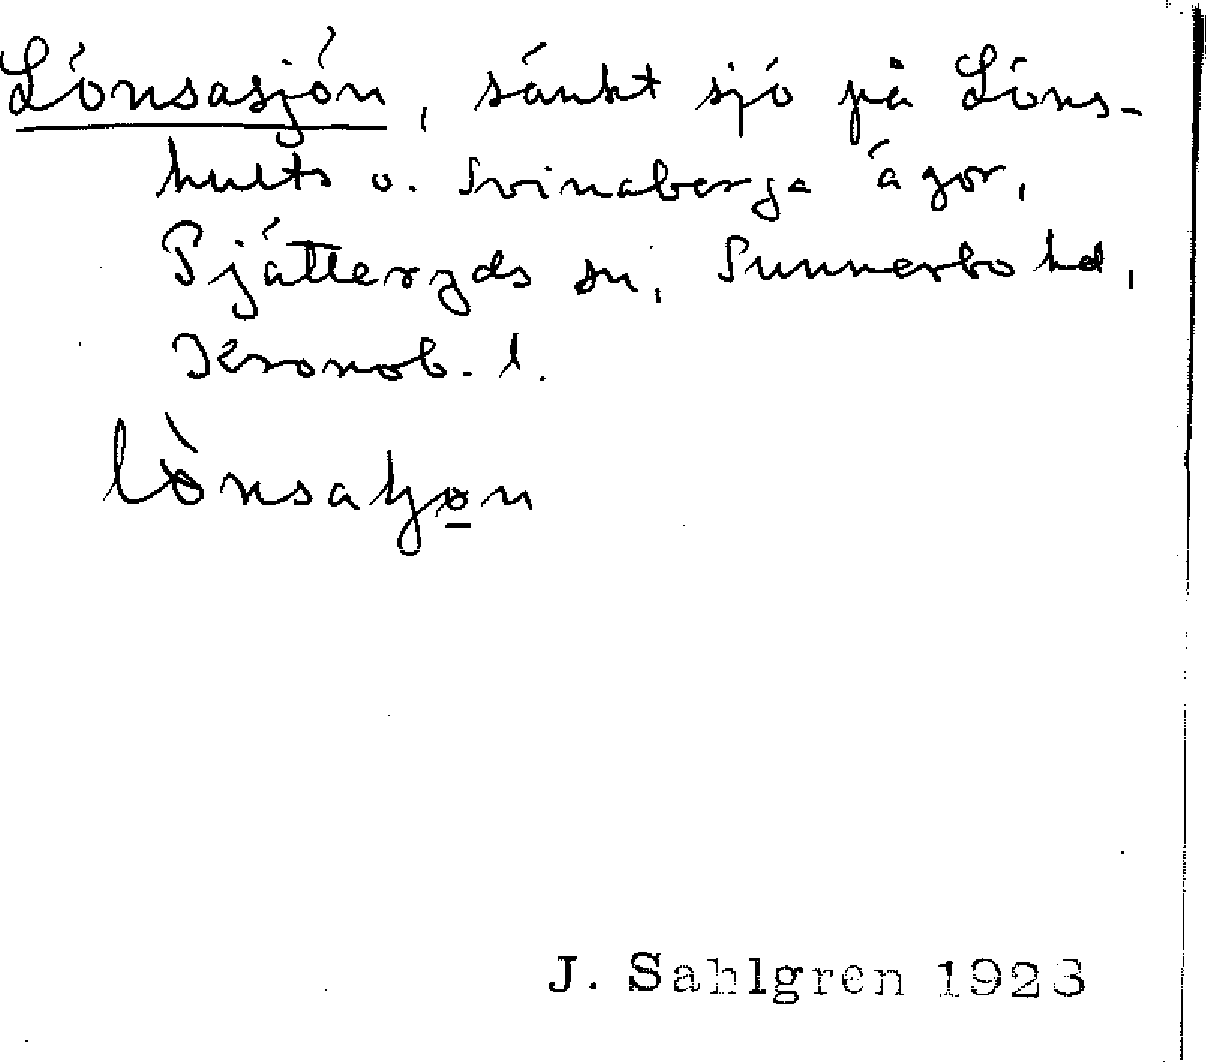 Lönsasjön, sänkt sjö på Löns-
hults o. Svinaberga ägor,
Pjätteryds sn, Sunnerbo hd,
Kronob. l.
J. Sahlgren 1923